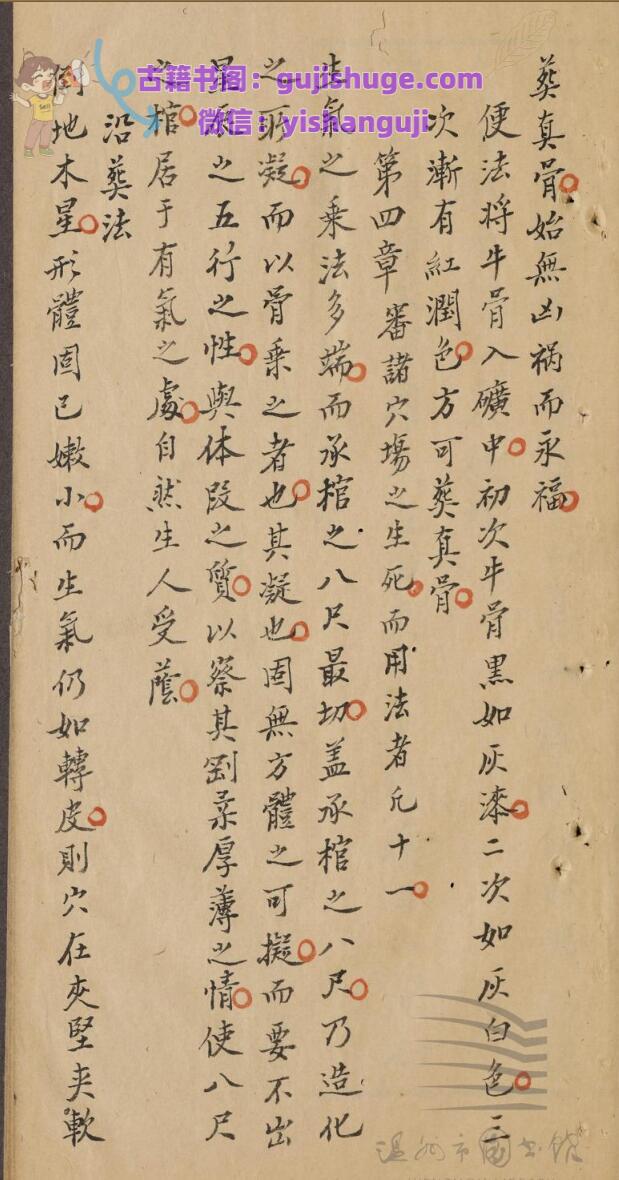 葬真骨始無凶禍而永福
便法將牛骨入礦中初次牛骨黑如灰漆二次如灰白色三
次漸有紅潤色方可葬真骨
第四章 審諸穴塲之生死而用法者凡十一
生氣之乗法多端而承棺之八尺最切盖承棺之八尺乃造化
之所凝而以骨乗之者也其凝也固無方體之可擬而要不出
星辰之五行之性與体段之質以察其剛柔厚薄之情使八尺
之棺居于有氣之處自然生人受蔭
沿葬法
倒地木星形體固已嫩小而生氣仍如轉皮則穴在夾堅夾軟
古籍书阁：gujishuge.com
微信：yishanguji
温州市图书馆